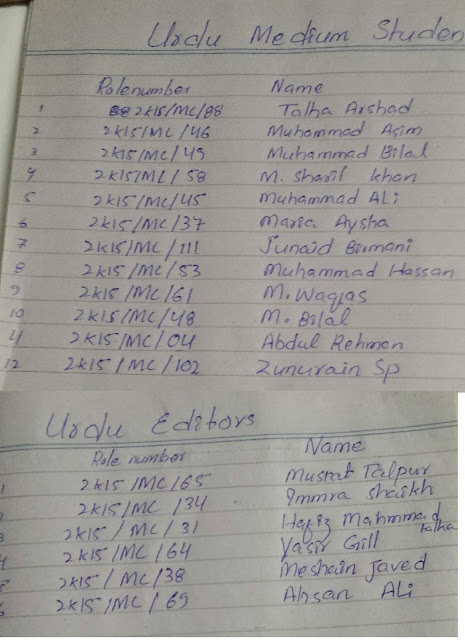 Urdu Medium Studen
Rolenumber Name
1 2K15/MC/88 Talha Arshad
2 2K15/MC/46 Muhammad Asim
3 2K15/MC/49 Muhammad Bilal
4 2K15/MC/58 M. Sharil Khan
5 2K15/MC/45 Muhammad ALi
6 2K15/MC/37 Maria Aysha
7 2K15/MC/111 Junaid
8 2K15/MC/53 Muhammad Hassan
9 2K15/MC/61 M. Waqas
10 2K15/MC/48 M. Bilal
11 2K15/MC/04 Abdul Rehman
12 2K15/MC/102 Zunurain Sp
Urdu Editors
Role number Name
1 2K15/MC/65 Musrat Talpur
2 2K15/MC/34 Shaikh
3 2K15/MC/31 Hafiz Mahmmad Talha
4 2K15/MC/64 Yasir Gill
5 2K15/MC/38 Meshain Javed
6 2K15/MC/69 Ahsan ALi